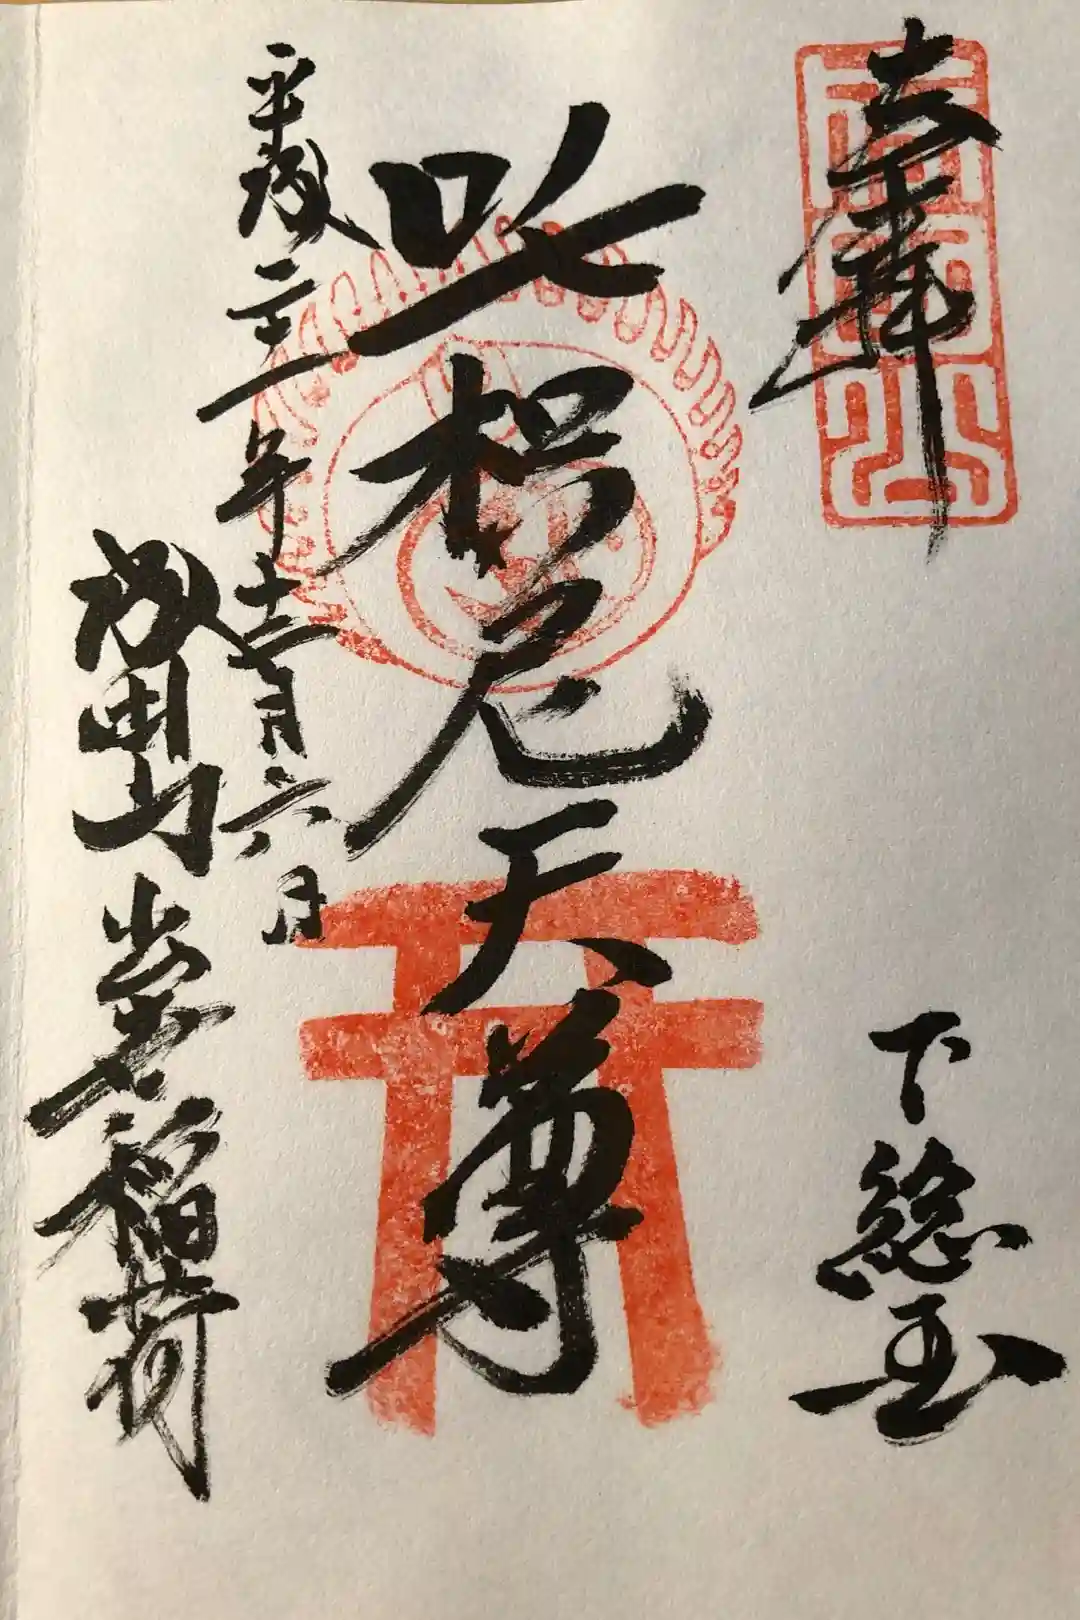 奉拝
下総国
吒枳尼天尊
平成三十一年壱月六日
成田山出世稲荷